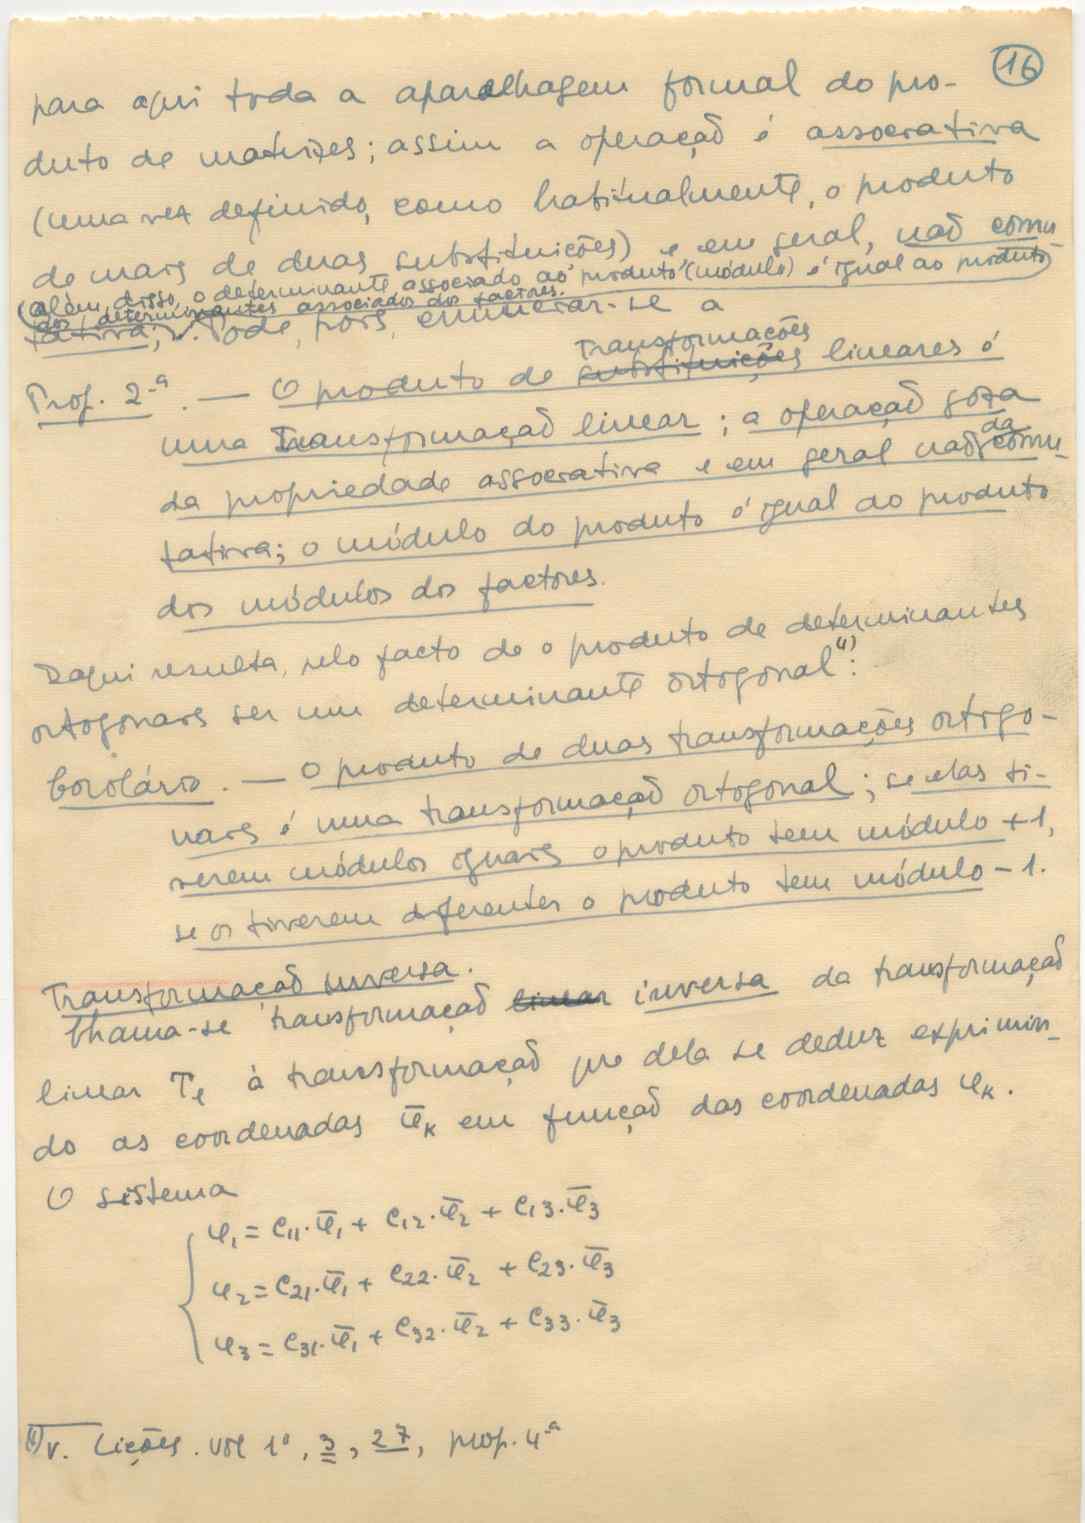 16
para aqui toda a aparelhagem formal do pro-
duto de matrizes; assim a operação é associativa
(uma vez definido, como habitualmente, o produto
de mais de duas substituições) e em geral, não comu-
(além disso, o determinante associado ao produto (módulo) é igual ao produto
dos determinantes associados dos factores.
tativa; Pode, pois, enunciar-se a
Transformações
Prop. 2.ª. — O produto de substituições lineares é
uma Transformação linear; a operação goza
da propriedade associativa e em geral não da comu-
tativa; o módulo do produto é igual ao produto
dos módulos dos factores.
Daqui resulta, pelo facto de o produto de determinantes
ortogonais ser um determinante ortogonal (1):
Corolário. — O produto de duas transformações ortogo-
nais é uma transformação ortogonal; se elas ti-
verem módulos iguais o produto tem módulo +1,
se os tiverem diferentes o produto tem módulo -1.
Transformação inversa.
Chama-se transformação linear inversa da transformação
linear T₁ à transformação que dela se deduz exprimin-
do as coordenadas ū_k em função das coordenadas u_k.
O sistema
u₁ = c₁₁·ū₁ + c₁₂·ū₂ + c₁₃·ū₃
u₂ = c₂₁·ū₁ + c₂₂·ū₂ + c₂₃·ū₃
u₃ = c₃₁·ū₁ + c₃₂·ū₂ + c₃₃·ū₃
(1) V. Lições. vol 1º, 3, 27, prop. 4.ª